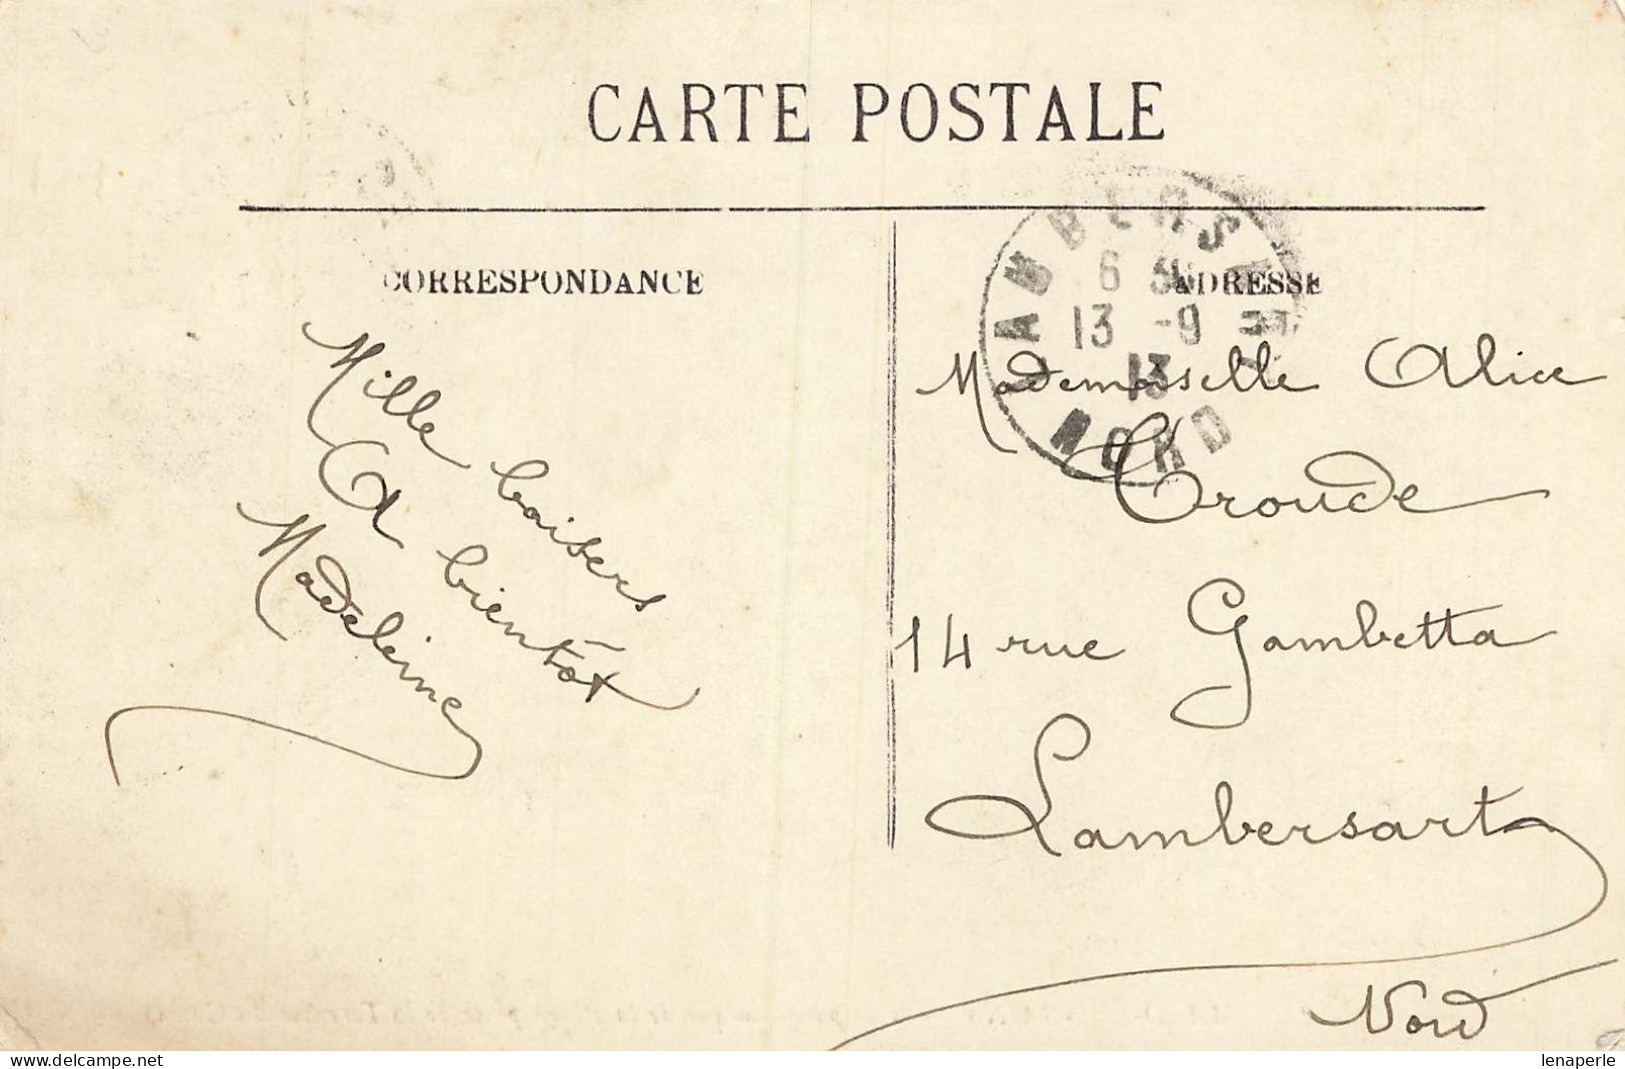 CARTE POSTALE
CORRESPONDANCE
ADRESSE
LAMBERSART
6 30
13 -9
13
NORD
Mille baisers
A bientôt
Madeleine
Mademoiselle Alice
Croude
14 rue Gambetta
Lambersart
Nord
www.delcampe.net
lenaperle